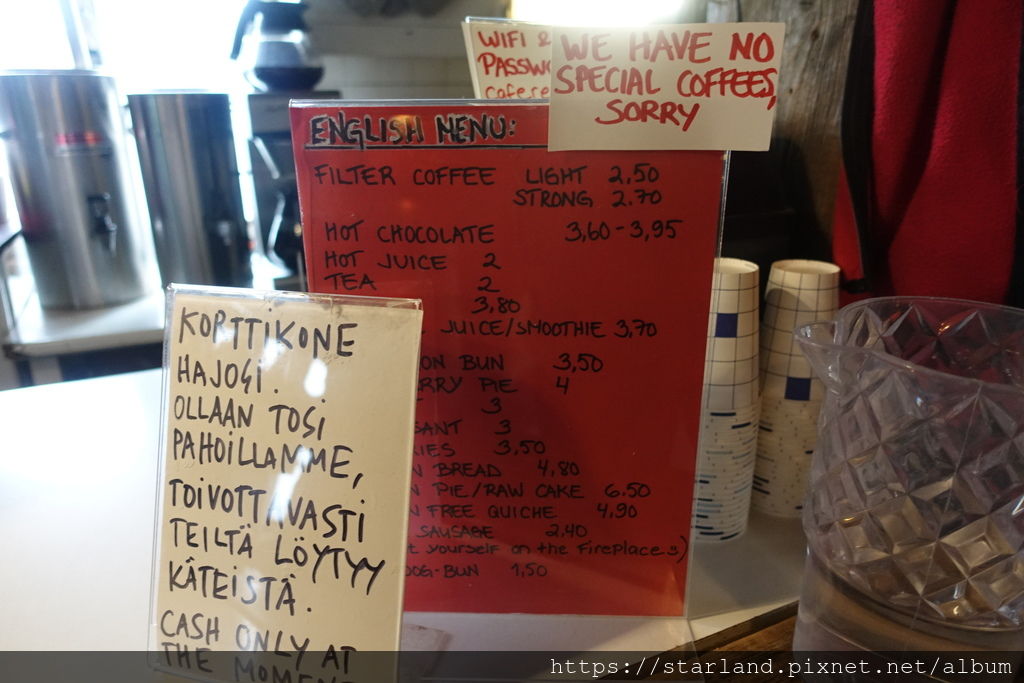 WIFI &
PASSW
cafe.re
WE HAVE NO
SPECIAL COFFEES,
SORRY
ENGLISH MENU:
FILTER COFFEE LIGHT 2,50
STRONG 2.70
HOT CHOCOLATE 3,60-3,95
HOT JUICE 2
TEA 2
3,80
JUICE/SMOOTHIE 3,70
ON BUN 3,50
RRY PIE 4
3
SANT 3
IES 3,50
N BREAD 4,80
N PIE/RAW CAKE 6.50
N FREE QUICHE 4,90
SAUSAGE 2.40
t yourself on the fireplace :)
DOG-BUN 1,50
KORTTIKONE
HAJOGI.
OLLAAN TOSI
PAHOILLAMME,
TOIVOTTAVASTI
TEILTÄ LÖYTYY
KÄTEISTÄ.
CASH ONLY AT
THE MOMEN
https://starland.pixnet.net/album